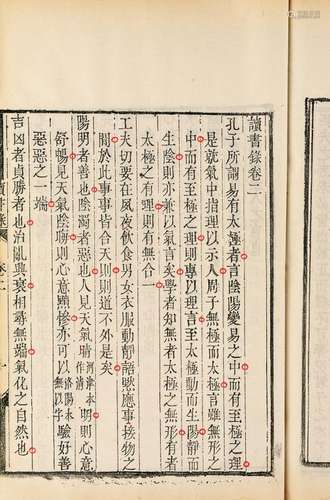 讀書錄卷二
孔子所謂易有太極者言陰陽變易之中而有至極之理
是就氣中指理以示人周子無極而太極言雖無形之
中而有至極之理則專以理言至太極動而生陽靜而
生陰則亦兼以氣言矣學者知無者太極之無形有者
太極之有理則有無合一
工夫切要在夙夜飲食男女衣服動靜語默應事接物之
間於此事事皆合天則則道不外是矣
陽明者善也陰濁者惡也人見天氣晴明則心意
舒暢見天氣陰晦則心意黯慘亦可以驗好善
惡惡之一端
吉凶者貞勝者也治亂興衰相尋無端氣化之自然也